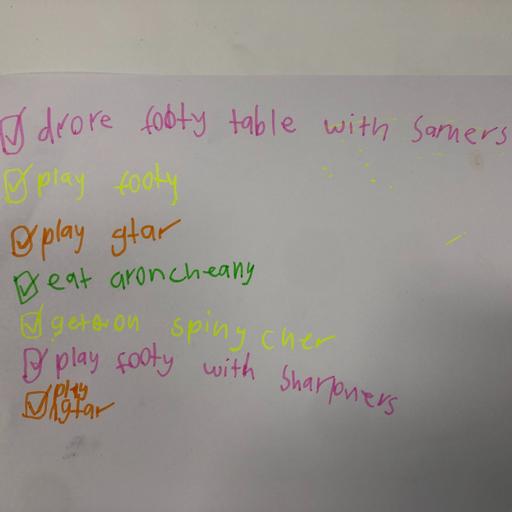 drore footy table with Samers
play footy
play gtar
eat aroncheany
get on spiny cher
play footy with Sharpners
play
gtar